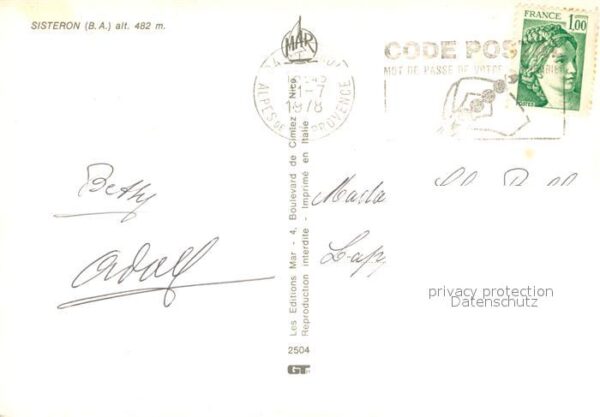 SISTERON (B.A.) alt. 482 m.
MAR
FRANCE
1,00
POSTES
CODE POS
MOT DE PASSE DE VOTRE
1-7
1978
ALPES DE
PROVENCE
Bethy
Adolf
Les Editions Mar - 4, Boulevard de Cimiez - Nice
Reproduction interdite - Imprimé en Italie
2504
GT
privacy protection
Datenschutz